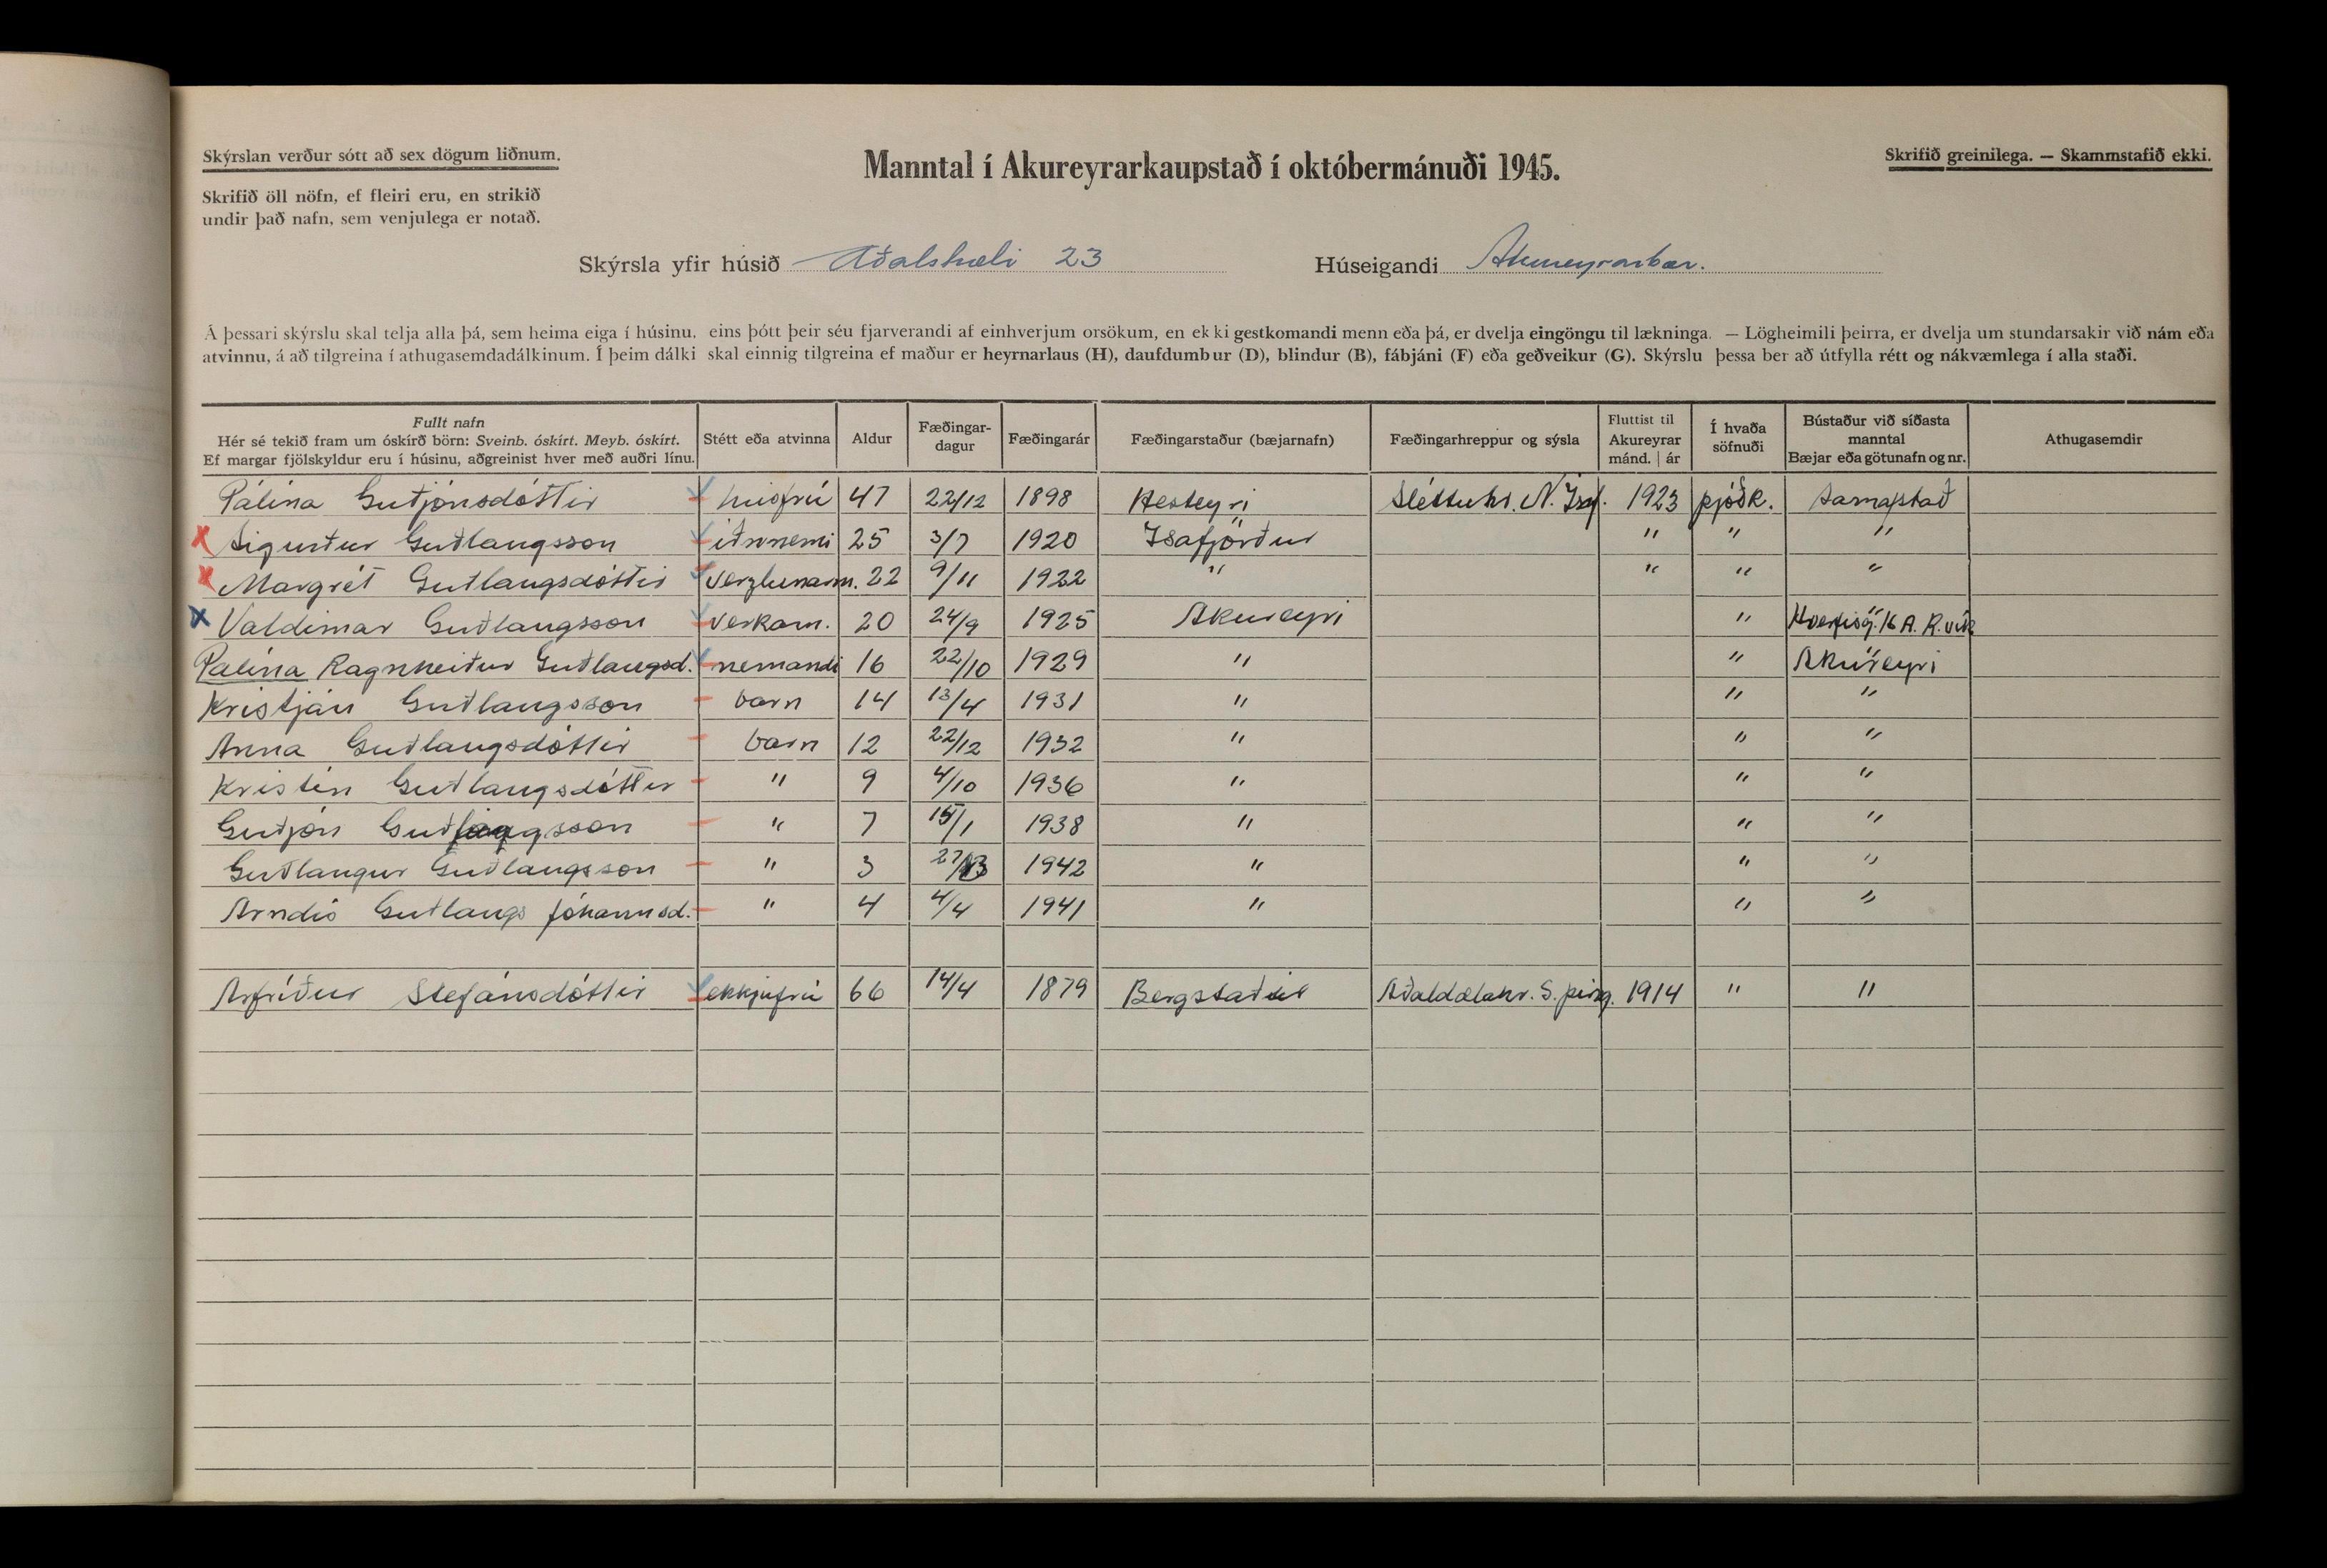 Skýrslan verður sótt að sex dögum liðnum.
Skrifið öll nöfn, ef fleiri eru, en strikið
undir það nafn, sem venjulega er notað.
Manntal í Akureyrarkaupstað í októbermánuði 1945.
Skrifið greinilega. — Skammstafið ekki.
Skýrsla yfir húsið Aðalstræti 23 Húseigandi Akureyrarbær.
Á þessari skýrslu skal telja alla þá, sem heima eiga í húsinu, eins þótt þeir séu fjarverandi af einhverjum orsökum, en ekki gestkomandi menn eða þá, er dvelja eingöngu til lækninga. — Lögheimili þeirra, er dvelja um stundarsakir við nám eða
atvinnu, á að tilgreina í athugasemdadálkinum. Í þeim dálki skal einnig tilgreina ef maður er heyrnarlaus (H), daufdumbur (D), blindur (B), fábjáni (F) eða geðveikur (G). Skýrslu þessa ber að útfylla rétt og nákvæmlega í alla staði.
Fullt nafn
Hér sé tekið fram um óskírð börn: Sveinb. óskírt. Meyb. óskírt.
Ef margar fjölskyldur eru í húsinu, aðgreinist hver með auðri línu.
Stétt eða atvinna
Aldur
Fæðingar-
dagur
Fæðingarár
Fæðingarstaður (bæjarnafn)
Fæðingarhreppur og sýsla
Fluttist til
Akureyrar
mánd. | ár
Í hvaða
söfnuði
Bústaður við síðasta
manntal
Bæjar eða götunafn og nr.
Athugasemdir
Pálína Guðjónsdóttir húsfrú 47 22/12 1898 Hesteyri Sléttuhr. N. Ísf. 1923 þjóðk. Samastað
x Sigurður Guðlaugsson iðnnemi 25 3/7 1920 Ísafjörður " " "
x Margrét Guðlaugsdóttir verzlunarm. 22 9/11 1922 " " " "
x Valdimar Guðlaugsson verkam. 20 24/9 1925 Akureyri " Hverfisg. 16 A. R.vík
Pálína Ragnheiður Guðlaugsd. nemandi 16 22/10 1929 " " Akureyri
Kristján Guðlaugsson barn 14 13/4 1931 " " "
Anna Guðlaugsdóttir barn 12 22/12 1932 " " "
Kristín Guðlaugsdóttir " 9 4/10 1936 " " "
Guðjón Guðlaugsson " 7 15/1 1938 " " "
Guðlaugur Guðlaugsson " 3 27/3 1942 " " "
Arndís Guðlaugs Jóhannsd. " 4 4/4 1941 " " "
Arfríður Stefánsdóttir ekkjufrú 66 14/4 1879 Bergstaðir Aðaldælahr. S. þing. 1914 " "